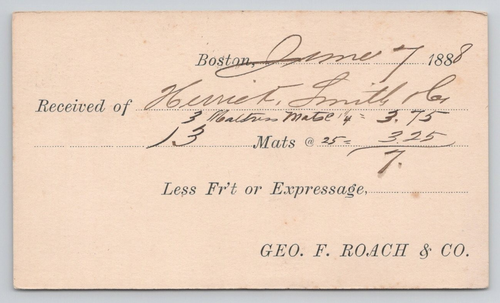 Boston, June 7 1888
Received of Herrick, Smith & Co
3 Mats @ 1¼ = 3.75
13 Mats @ 25 = 3.25
7.
Less Fr't or Expressage,
GEO. F. ROACH & CO.